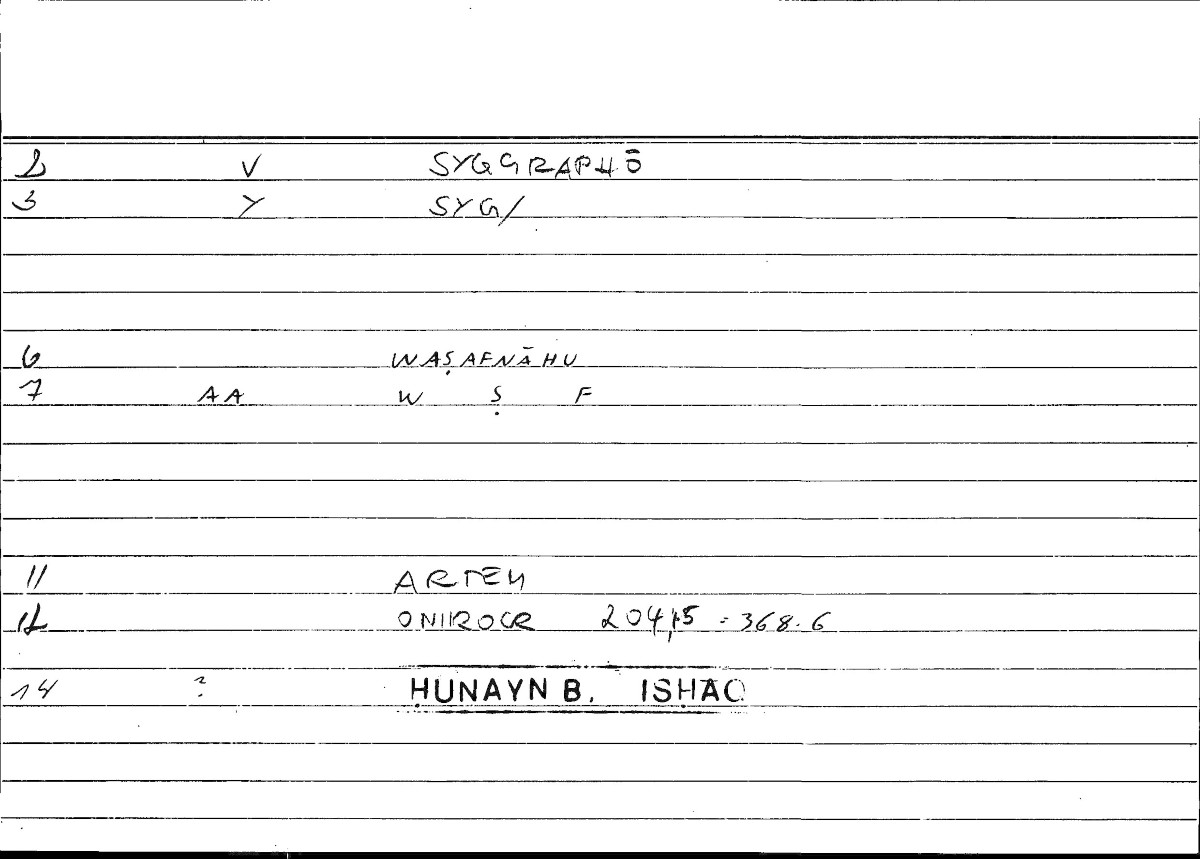 2 V SYGGRAPHŌ
3 Y SYG/
6 WAṢAFNĀHU
7 AA W Ṣ F
11 ARTEM
12 ONIROCR 204,15 = 368.6
14 ? ḤUNAYN B. ISḤAQ